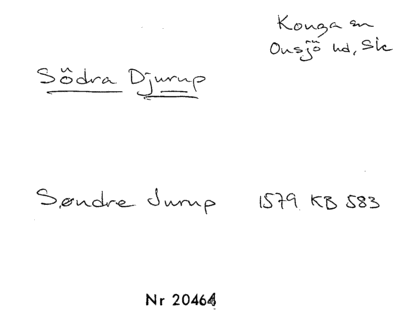 Konga sn
Onsjö hd, Sk
Södra Djurup
Søndre Jurup 1579 KB 583
Nr 20464